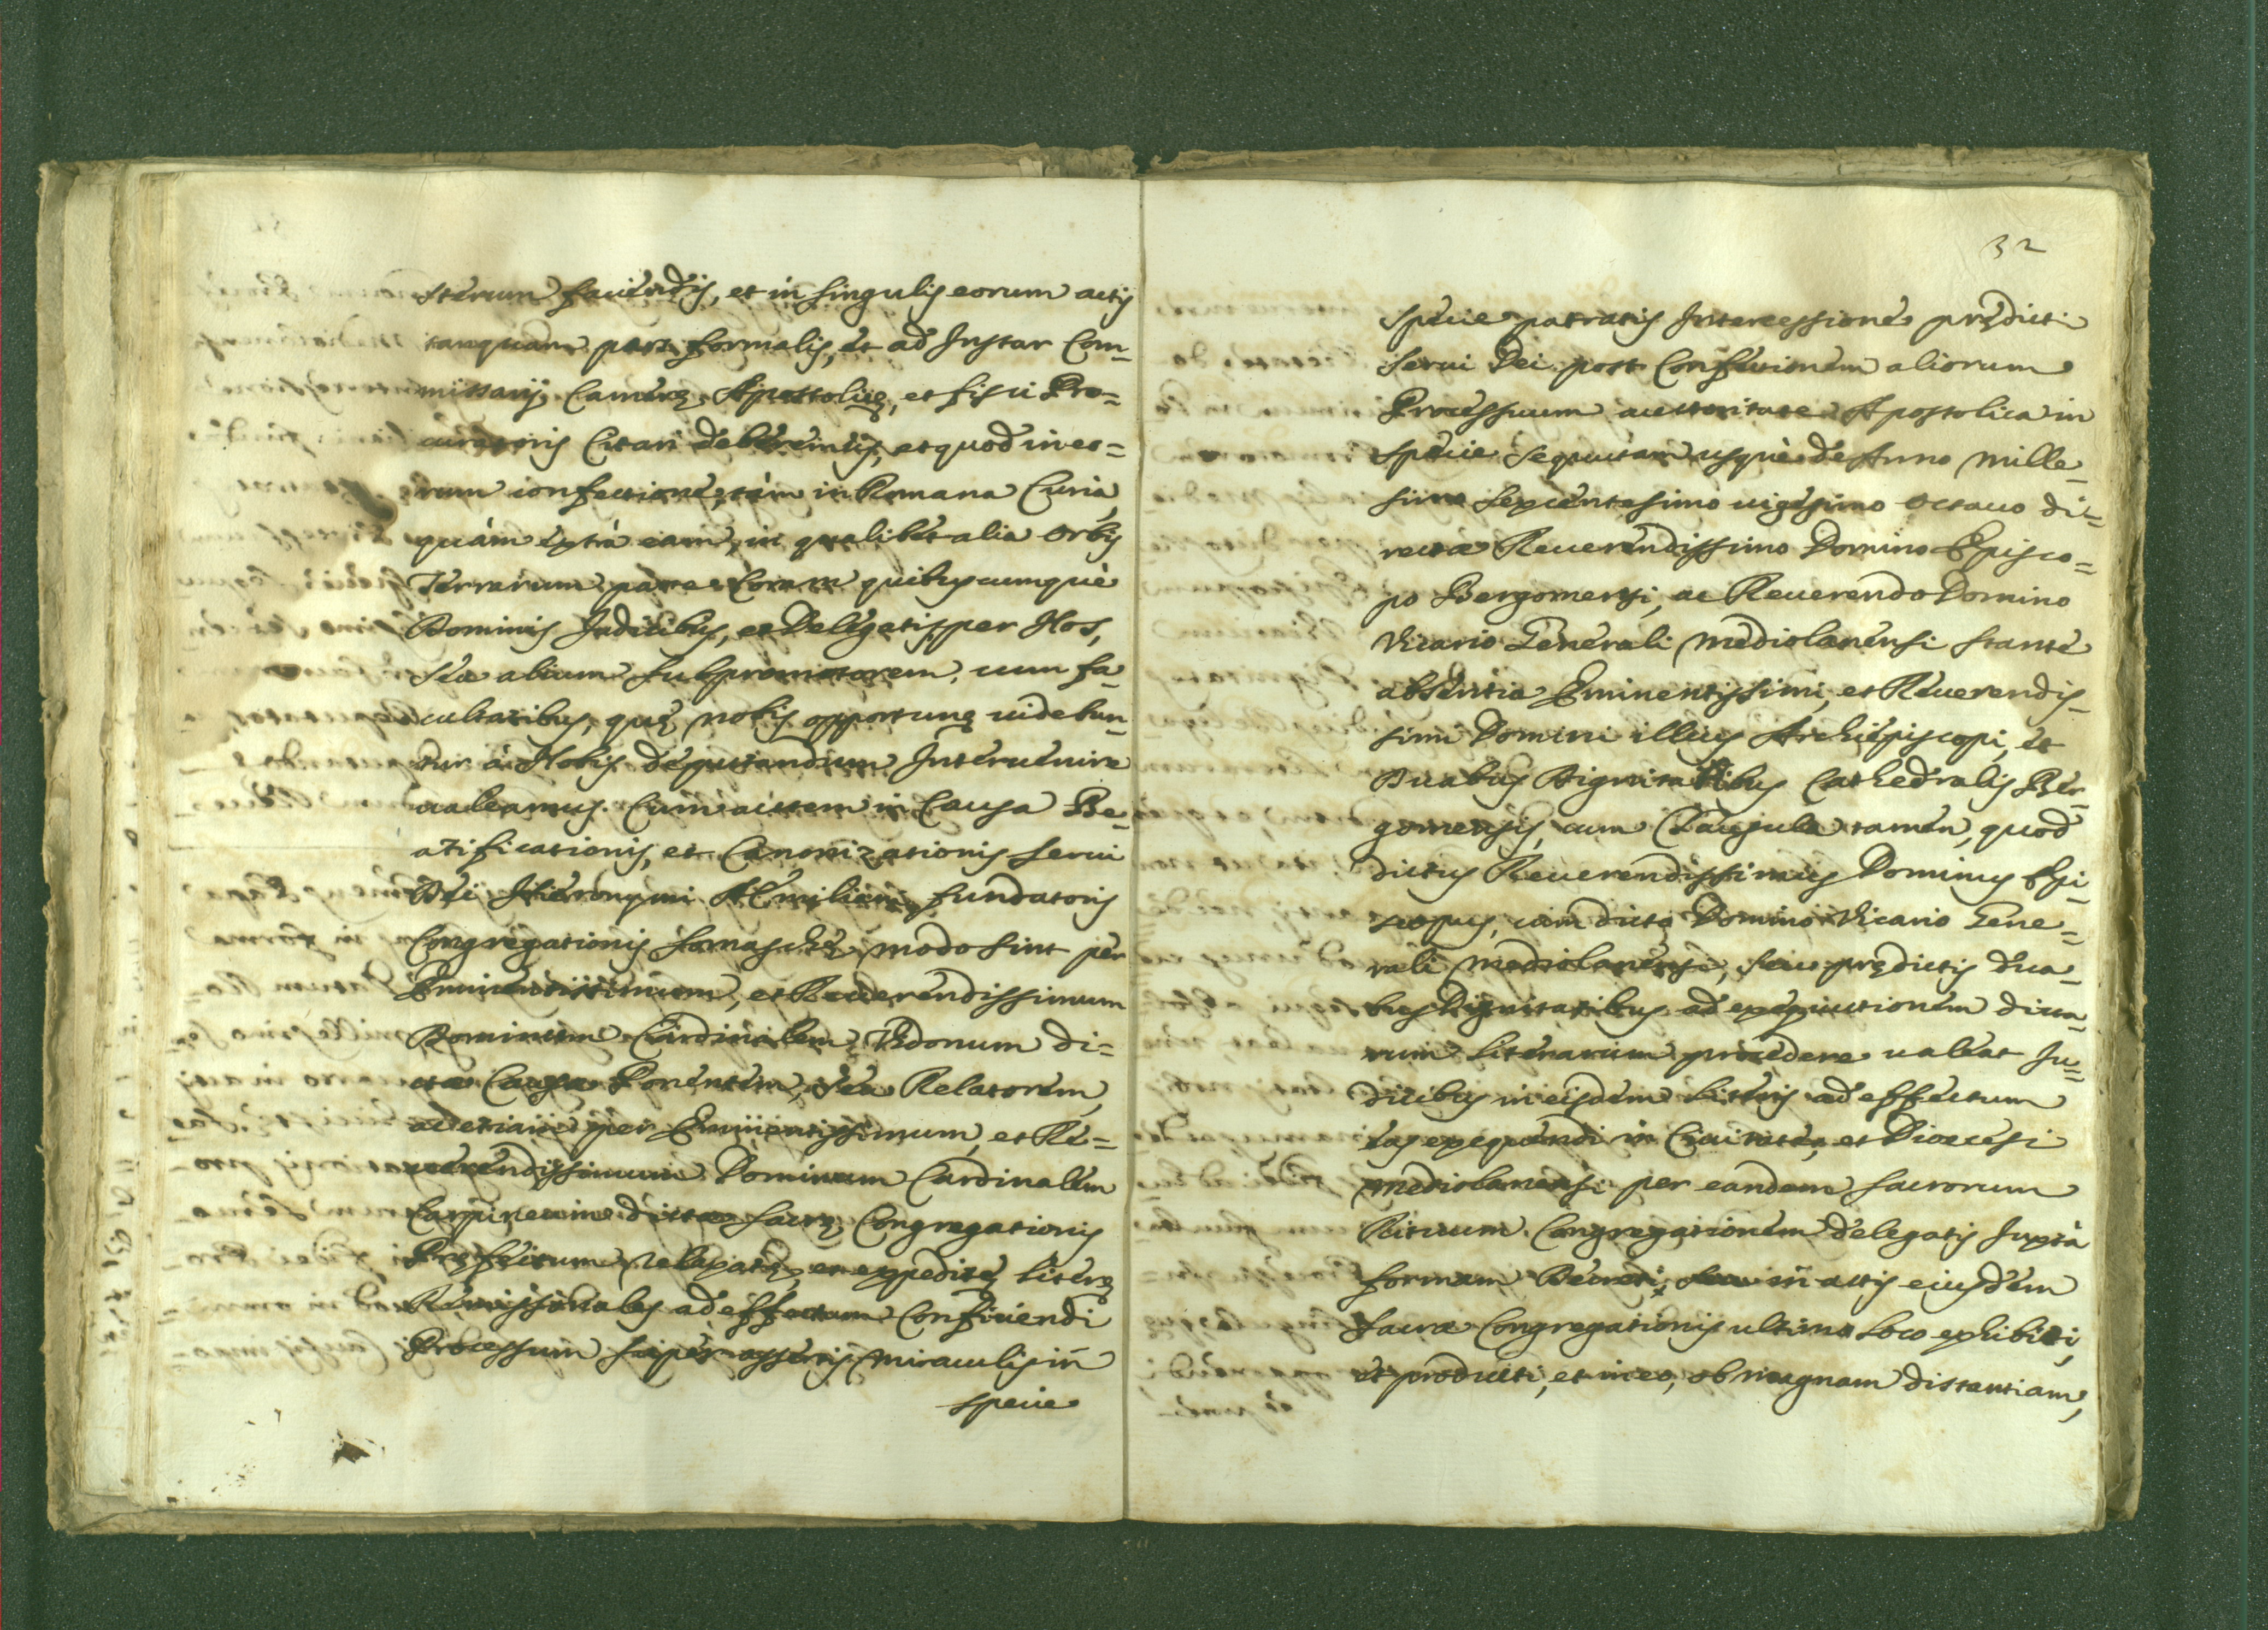 sterum faciendis, et in singulis eorum actis
tanquam pars formalis, et ad Instar Com-
missarij Camerę Apostolicę, et fisci Pro=
curatoris Citari deberemus, et quod in eo=
rum confectione, tàm in Romana Curia,
quàm extrà eam, in qualibet alia Orbis
Terrarum parte coram quibuscumquè
Dominis Judicibus, et Delegatis, per Nos,
seu alium subpromotorem, cum fa-
cultatibus, quę nobis opportunę uidebun-
tur à Nobis deputandum Interuenire
ualeamus. Cum autem in Causa Be-
atificationis, et Canonizationis serui
Dei Hieronymi AEmiliani fundatoris
Congregationis somaschę modo sint per
Eminentissimum, et Reuerendissimum
Dominum Cardinalem Vidonum di=
ctæ Causæ Ponentem, seu Relatorem,
ac etiam per Eminentissimum, et Re=
uerendissimum Dominum Cardinalem
Carpineum dictæ sacrę Congregationis
Pręfectum relaxatę, et expeditę literę
Remissionales ad effectum Conficiendi
Processum super assertis miraculis in
specie
32
specie patratis Intercessione prędicti
serui Dei post Confectionem aliorum
Processuum auctoritate Apostolica in
specie sequutam usquè de Anno Mille-
simo sexcentesimo uigesimo octauo di-
rectæ Reuerendissimo Domino Episco=
po Bergomensi, ac Reuerendo Domino
Vicario Generali Mediolanensi stante
absentia Eminentissimi, et Reuerendis-
simi Domini illius Archiepiscopi, et
Duabus Dignitatibus Cathedralis Ber-
gomensis, cum Clausula tamen, quod
dictus Reuerendissimus Dominus Epi-
scopus, cum dicto Domino Vicario Gene=
rali Mediolanensi, seu prędictis dua-
bus Dignitatibus ad exequutionem dicta-
rum Literarum procedere ualeat Ju=
dicibus in eisdem Literis ad effectum
eas exequendi in Ciuitate, et Dioecesi
Mediolanensi per eandem sacrorum
Rituum Congregationem delegatis Juxtà
formam Decreti, seu in actis eiusdem
sacræ Congregationis ultimo loco exhibiti,
et producti, et in eo, ob magnam distantiam,